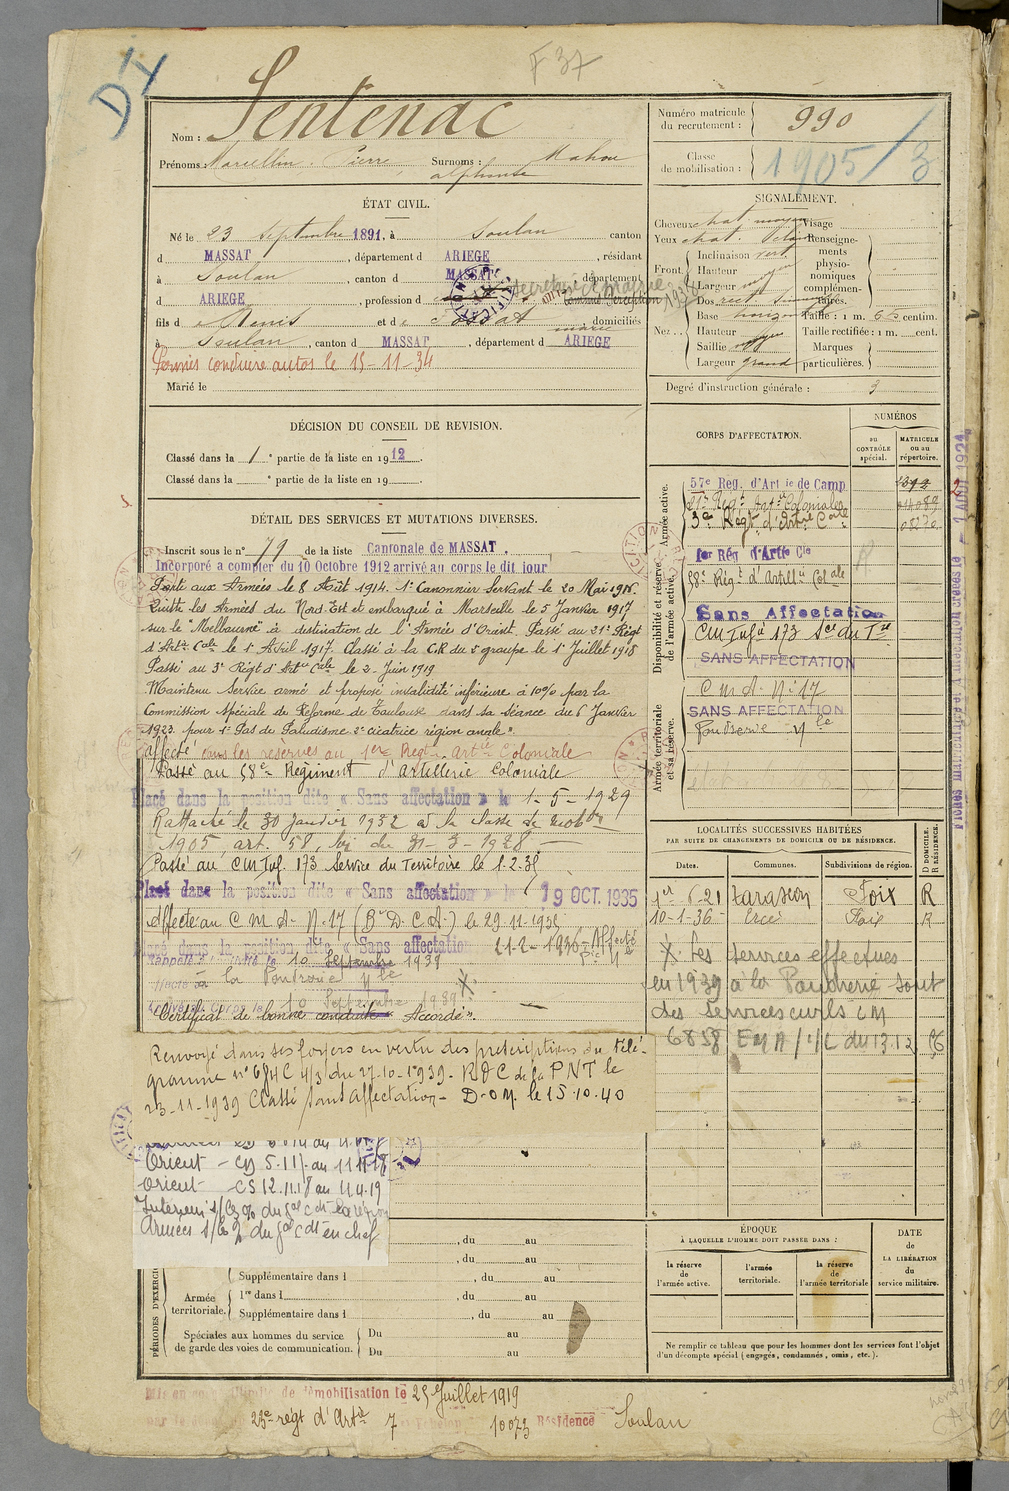 D4
F 37
Nom : Sentenac
Prénoms : Marcellin Pierre Surnoms : Mahou
alphonse
Numéro matricule du recrutement : 990
Classe de mobilisation : 1905/3
ÉTAT CIVIL.
Né le 23 Septembre 1891, à Soulan canton
d MASSAT, département d ARIEGE, résidant
à Soulan, canton d MASSAT, département
d ARIEGE, profession d secrétaire de Mairie
fils d e Denis et d e Fossat domiciliés
à Soulan, canton d MASSAT, département d ARIEGE
Permis conduire autos le 15-11-34
Marié le
SIGNALEMENT.
Cheveux chat. moyen Visage
Yeux chat. Renseigne-
ments
physio-
nomiques
complémen-
taires.
Front. Inclinaison vert
Hauteur moy
Largeur moy
Nez. Dos rect
Base horizont Taille : 1 m. centim.
Hauteur moyen Taille rectifiée : 1 m. cent.
Saillie moy Marques
Largeur grand particulières.
Degré d'instruction générale : 3
DÉCISION DU CONSEIL DE REVISION.
Classé dans la 1e partie de la liste en 1912.
Classé dans la e partie de la liste en 19
DÉTAIL DES SERVICES ET MUTATIONS DIVERSES.
Inscrit sous le n° 79 de la liste Cantonale de MASSAT.
Incorporé a compter du 10 Octobre 1912 arrivé au corps le dit jour
Parti aux Armées le 8 Août 1914. 1er Canonnier Servant le 20 Mai 1916.
Quitte les Armées du Nord-Est et embarqué à Marseille le 5 Janvier 1917
sur le "Melbourne" à destination de l'Armée d'Orient. Passé au 21e Régt
d'Artie Cale le 1er Avril 1917. Classé à la C.R du 5e groupe le 1er Juillet 1918
Passé au 3e Régt d'Artie Cale le 2 Juin 1919
Maintenu Service armé et proposé invalidité inférieure à 10% par la
Commission Spéciale de Réforme de Toulouse dans sa séance du 6 Janvier
1923 pour 1° Pas de Paludisme 2° cicatrice région anale".
affecté dans les réserves au 1er Régt Artie Coloniale
Passé au 58e Régiment d'artillerie Coloniale
Placé dans la position dite « Sans affectation » le 1-5-1929
Rattaché le 30 janvier 1932 à la classe de mobon
1905 art. 58, loi du 31-3-1928
Passé au C M Inf. 173 Service du Territoire le 1.2.35
Placé dans la position dite « Sans affectation » le 19 OCT. 1935
affecté au C M A. N. 17 (Bie D.C.A.) le 29.11.1935
Placé dans la position dite « Sans affectation 21-2-1936 - Affecté
Rappelé à l'activité le 10 Septembre 1939
Affecté à la Poudrerie Nle
Arrivé au Corps le 10 Septembre 1939
Certificat de bonne conduite "Accordé".
Renvoyé dans ses foyers en vertu des prescriptions du télé-
gramme n° 684 C 4/3 du 27-10-1939 - RDC de la PNT le
23-11-1939 Classé sans affectation - D.O.M. le 15.10.40
Orient - CD 5.1.17 au 11.11.18
Orient - CS 12.11.18 au 11.4.19
Intérieur s/les o/o du gal cdt la région
Armées s/les o/o du gal cdt en chef
CORPS D'AFFECTATION.
NUMÉROS
au CONTRÔLE spécial.
MATRICULE ou au répertoire.
Armée active.
57e Reg. d'Artie de Camp
21e Régt Artie Coloniale
3e Régt d'Artie Cale
Disponibilité et réserve de l'armée active.
1er Rég d'Artie Cle
58e Régt d'Artillie Colale
Sans Affectation
CM Infie 173 Sce du Tre
SANS AFFECTATION
Armée territoriale et sa réserve.
C M A. N° 17
SANS AFFECTATION
Poudrerie Nle
LOCALITÉS SUCCESSIVES HABITÉES
PAR SUITE DE CHANGEMENTS DE DOMICILE OU DE RÉSIDENCE.
Dates. Communes. Subdivisions de région. D DOMICILE. R RÉSIDENCE.
1er 6-21 Tarascon Foix R
10-1-36 Ercé Foix R
X. Les services effectués
en 1939 à la Poudrerie sont
des services civils CM
6858 EMA/1/L du 13.12
PÉRIODES D'EXERCICES
, du au
, du au
Supplémentaire dans l , du au
Armée territoriale. 1re dans l , du au
Supplémentaire dans l , du au
Spéciales aux hommes du service
de garde des voies de communication. Du au
Du au
ÉPOQUE
À LAQUELLE L'HOMME DOIT PASSER DANS :
la réserve de l'armée active.
l'armée territoriale.
la réserve de l'armée territoriale
DATE de LA LIBÉRATION du service militaire.
Ne remplir ce tableau que pour les hommes dont les services font l'objet
d'un décompte spécial (engagés, condamnés, omis, etc.).
Mis en congé illimité de démobilisation le 25 Juillet 1919
22e régt d'Artie Résidence Soulan